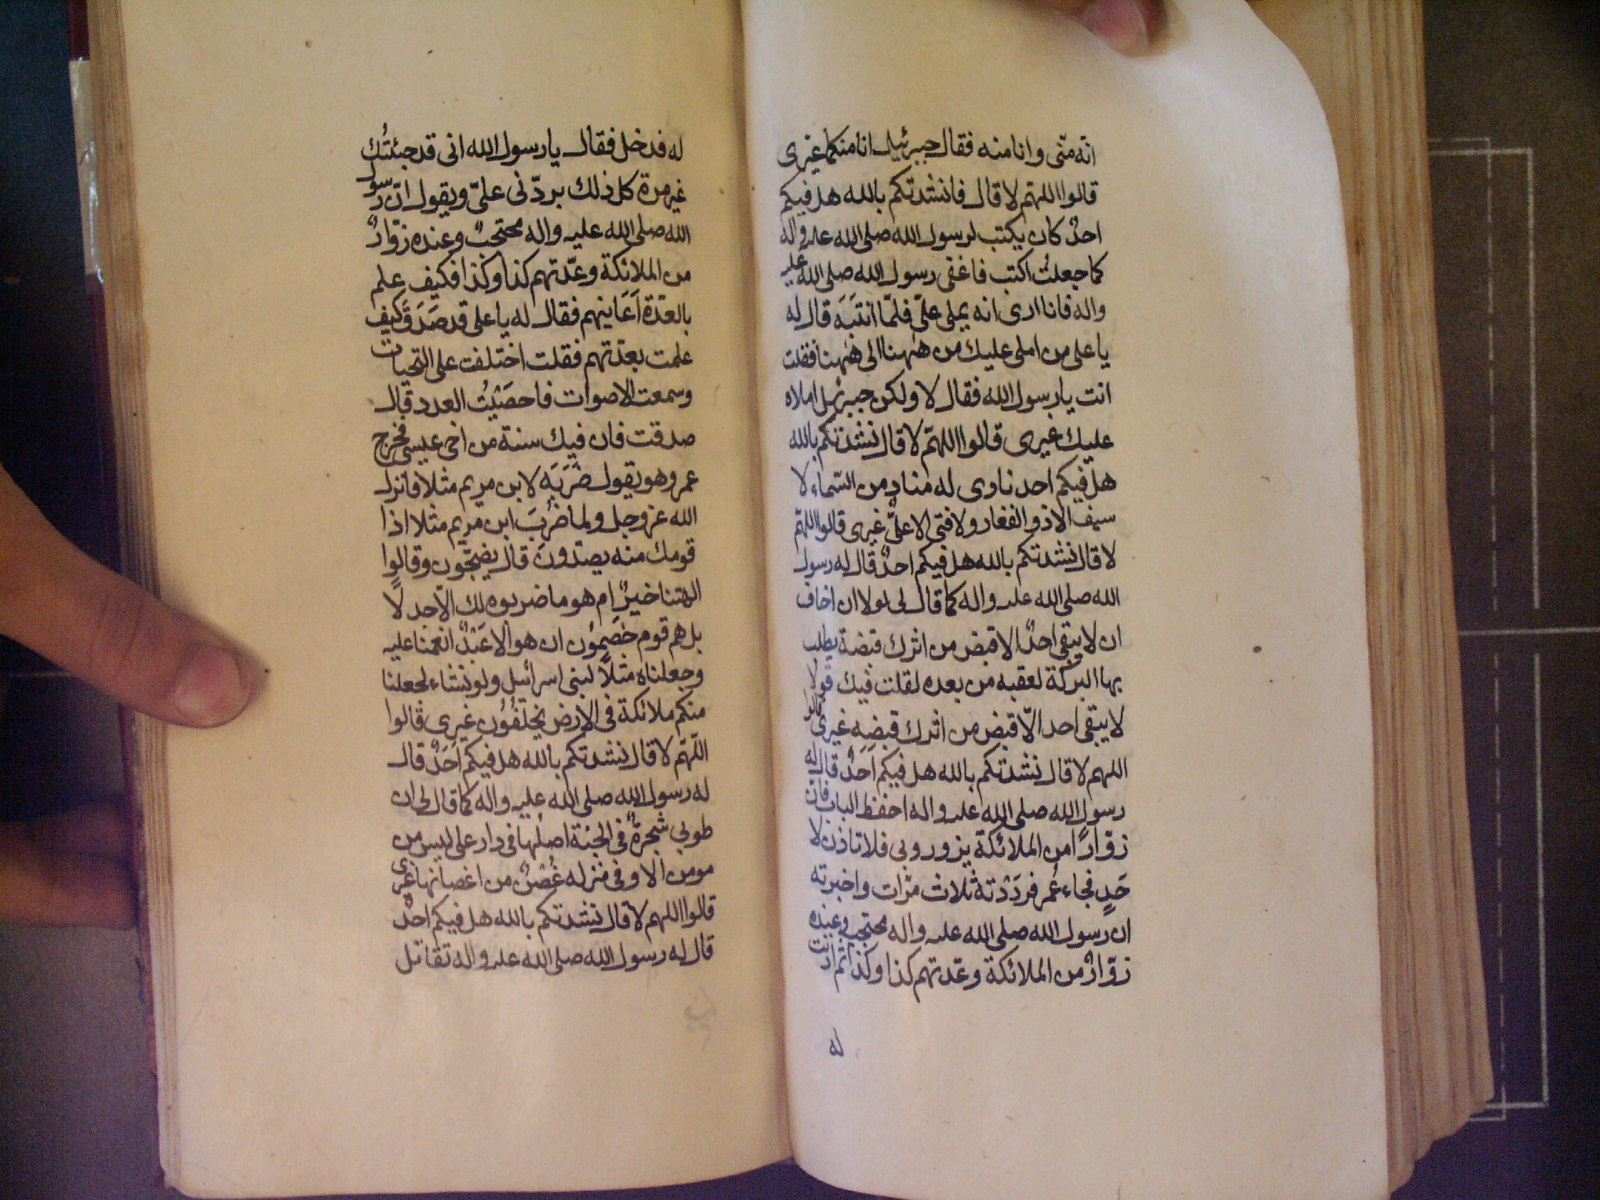 انه منّى وانا منه فقال جبرئيل انا منكما غيرى
قالوا اللهّم لا قال فانشدتكم بالله هل فيكم
احدٌ كان يكتب لرسول الله صلى الله عليه واله
كما جعلتُ اكتب فاغفى رسول الله صلى الله عليه
واله فانا ارى انه يملى علىّ فلمّا انتَبَهَ قال له
يا على من املى عليك من هٰهنا الى هٰهنا فقلت
انت يا رسول الله فقال لا ولكن جبرئيل املاه
عليك غيرى قالوا اللهّم لا قال نشدتكم بالله
هل فيكم احد نادى له منادٍ من السّماء لا
سيف الا ذو الفقار ولا فتى الا علىٌّ غيرى قالوا اللهّم
لا قال نشدتكم بالله هل فيكم احدٌ قال له رسول
الله صلى الله عليه واله كما قال لى لولا ان اخاف
ان لا يبقى احدٌ الا قبض من اثرك قبضة يطلب
بها البركة لعقبه من بعده لقلت فيك قولا
لا يبقى احد الّا قبض من اثرك قبضه غيرى قالوا
اللهم لا قال نشدتكم بالله هل فيكم اَحَدٌ قال له
رسول الله صلى الله عليه واله احفظ الباب فانّ
زوّارًا من الملائكة يزورونى فلا تاذن لا
حَدٍ فجاء عُمر فردَدْتَهُ ثلاث مرّات واخبرته
ان رسول الله صلى الله عليه واله محتجب وعنده
زوّارٌ من الملائكة وعدّتهم كذا وكذا ثم اذنت
له
له فدخل فقال يا رسول الله انى قد جئتُك
غير مرة كل ذلك يردّنى علىّ ويقول انّ رسول
الله صلى الله عليه واله محتجبٌ وعنده زوّارٌ
من الملائكة وعدّتهم كذا وكذا فكيف علم
بالعدّة اَعَاينهم فقال له يا على قد صَدَقَ كيف
علمت بعدّتهم فقلت اختلفت علىّ التحيات
وسمعت الاصوات فاحصَيْتُ العدد قال
صدقت فان فيك سنة من اخى عيسى فخرج
عمر وهو يقول ضَرَبَه لابن مريم مثلا فانزل
الله عز وجل ولما ضُرِبَ ابن مريم مثلا اذا
قومك منه يصدّون قال يضجّون وقالوا
الهتنا خيرٌ ام هو ما ضربوه لك الّا جدلًا
بل هم قوم خَصِموُن ان هو الا عَبْدٌ انعمنا عليه
وجعلناه مثلاً لبنى اسرائيل ولو نشاء لجعلنا
منكم ملائكة فى الارض يخلفُون غيرى قالوا
اللّهم لا قال نشدتكم بالله هل فيكم اَحَدٌ قال
له رسول الله صلى الله عليه واله كما قال لى ان
طوبى شجرةٌ فى الجنة اصلُها فى دار على ليس من
مومن الا وفى منزله غُصْنٌ من اغصانها غيرى
قالوا اللهم لا قال نشدتكم بالله هل فيكم احدٌ
قال له رسول الله صلى الله عليه واله تقاتل